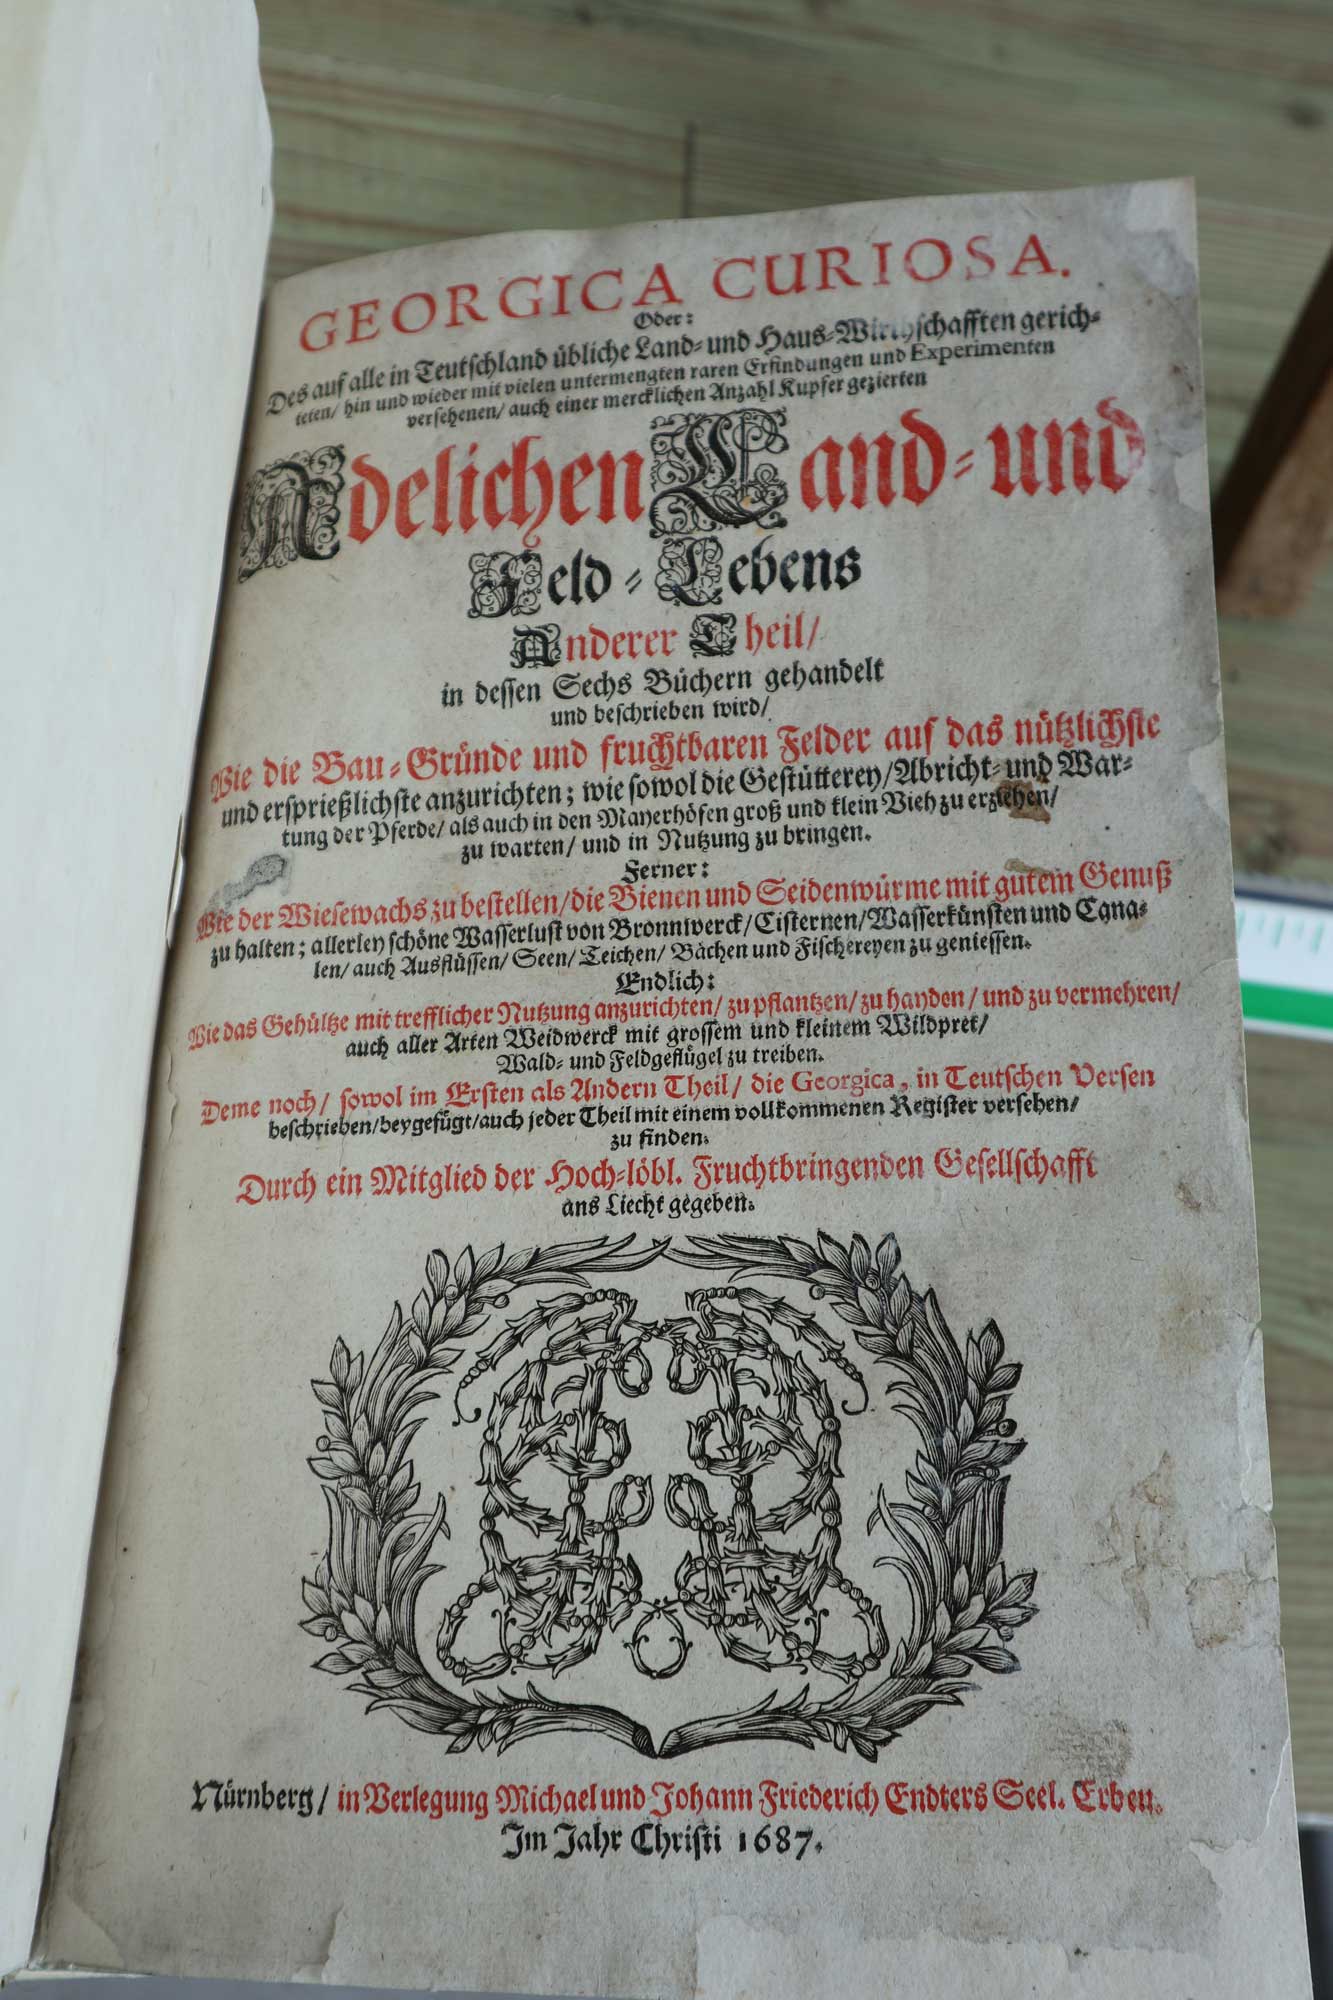 GEORGICA CURIOSA.
Oder:
Des auf alle in Teutschland übliche Land- und Haus-Wirthschafften gerich-
teten/ hin und wieder mit vielen untermengten raren Erfindungen und Experimenten
versehenen/ auch einer mercklichen Anzahl Kupfer gezierten
Adelichen Land- und
Feld-Lebens
Anderer Theil/
in dessen Sechs Büchern gehandelt
und beschrieben wird/
Wie die Bau-Gründe und fruchtbaren Felder auf das nützlichste
und ersprießlichste anzurichten; wie sowol die Gestütterey/ Abricht- und War-
tung der Pferde/ als auch in den Mayerhöfen groß und klein Vieh zu erziehen/
zu warten/ und in Nutzung zu bringen.
Ferner:
Wie der Wiesewachs zu bestellen/ die Bienen und Seidenwürme mit gutem Genuß
zu halten; allerley schöne Wasserlust von Bronnwerck/ Cisternen/ Wasserkünsten und Canä-
len/ auch Ausflüssen/ Seen/ Teichen/ Bächen und Fischereyen zu geniessen.
Endlich:
Wie das Gehültze mit trefflicher Nutzung anzurichten/ zu pflantzen/ zu hayden/ und zu vermehren/
auch aller Arten Weidwerck mit grossem und kleinem Wildpret/
Wald- und Feldgeflügel zu treiben.
Deme noch/ sowol im Ersten als Andern Theil/ die Georgica, in Teutschen Versen
beschrieben/ beygefügt/ auch jeder Theil mit einem vollkommenen Register versehen/
zu finden.
Durch ein Mitglied der Hoch-löbl. Fruchtbringenden Gesellschafft
ans Liecht gegeben.
Nürnberg/ in Verlegung Michael und Johann Friederich Endters Seel. Erben.
Im Jahr Christi 1687.